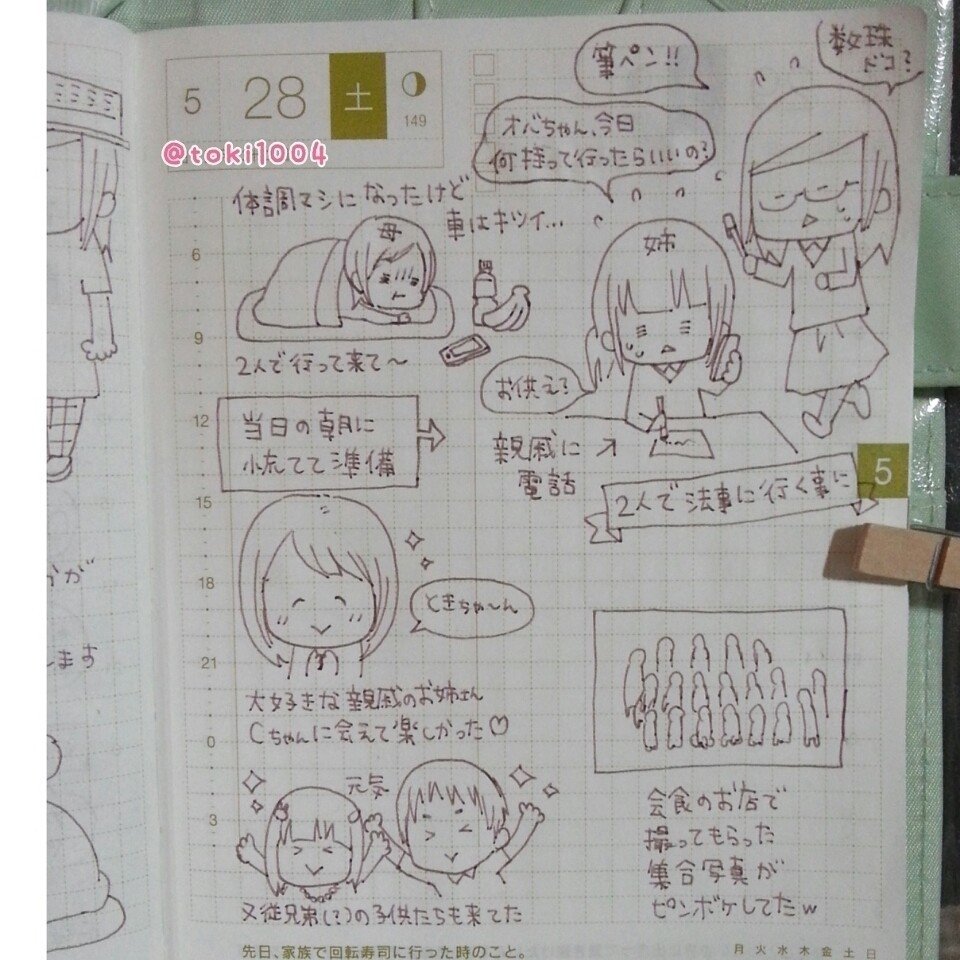 5 28 土
149
@toki1004
筆ペン!!
数珠
ドコ?
オバちゃん、今日
何持って行ったらいいの?
体調マシになったけど
車はキツイ…
母
姉
2人で行って来て〜
お供え?
当日の朝に
慌てて準備
親戚に
電話
2人で法事に行く事に
5
ときちゃ〜ん
大好きな親戚のお姉さん
Cちゃんに会えて楽しかった♡
元気
又従兄弟(?)の子供たちも来てた
会食のお店で
撮ってもらった
集合写真が
ピンボケしてたw
6
9
12
15
18
21
0
3
先日、家族で回転寿司に行った時のこと。
月 火 水 木 金 土 日
が
します